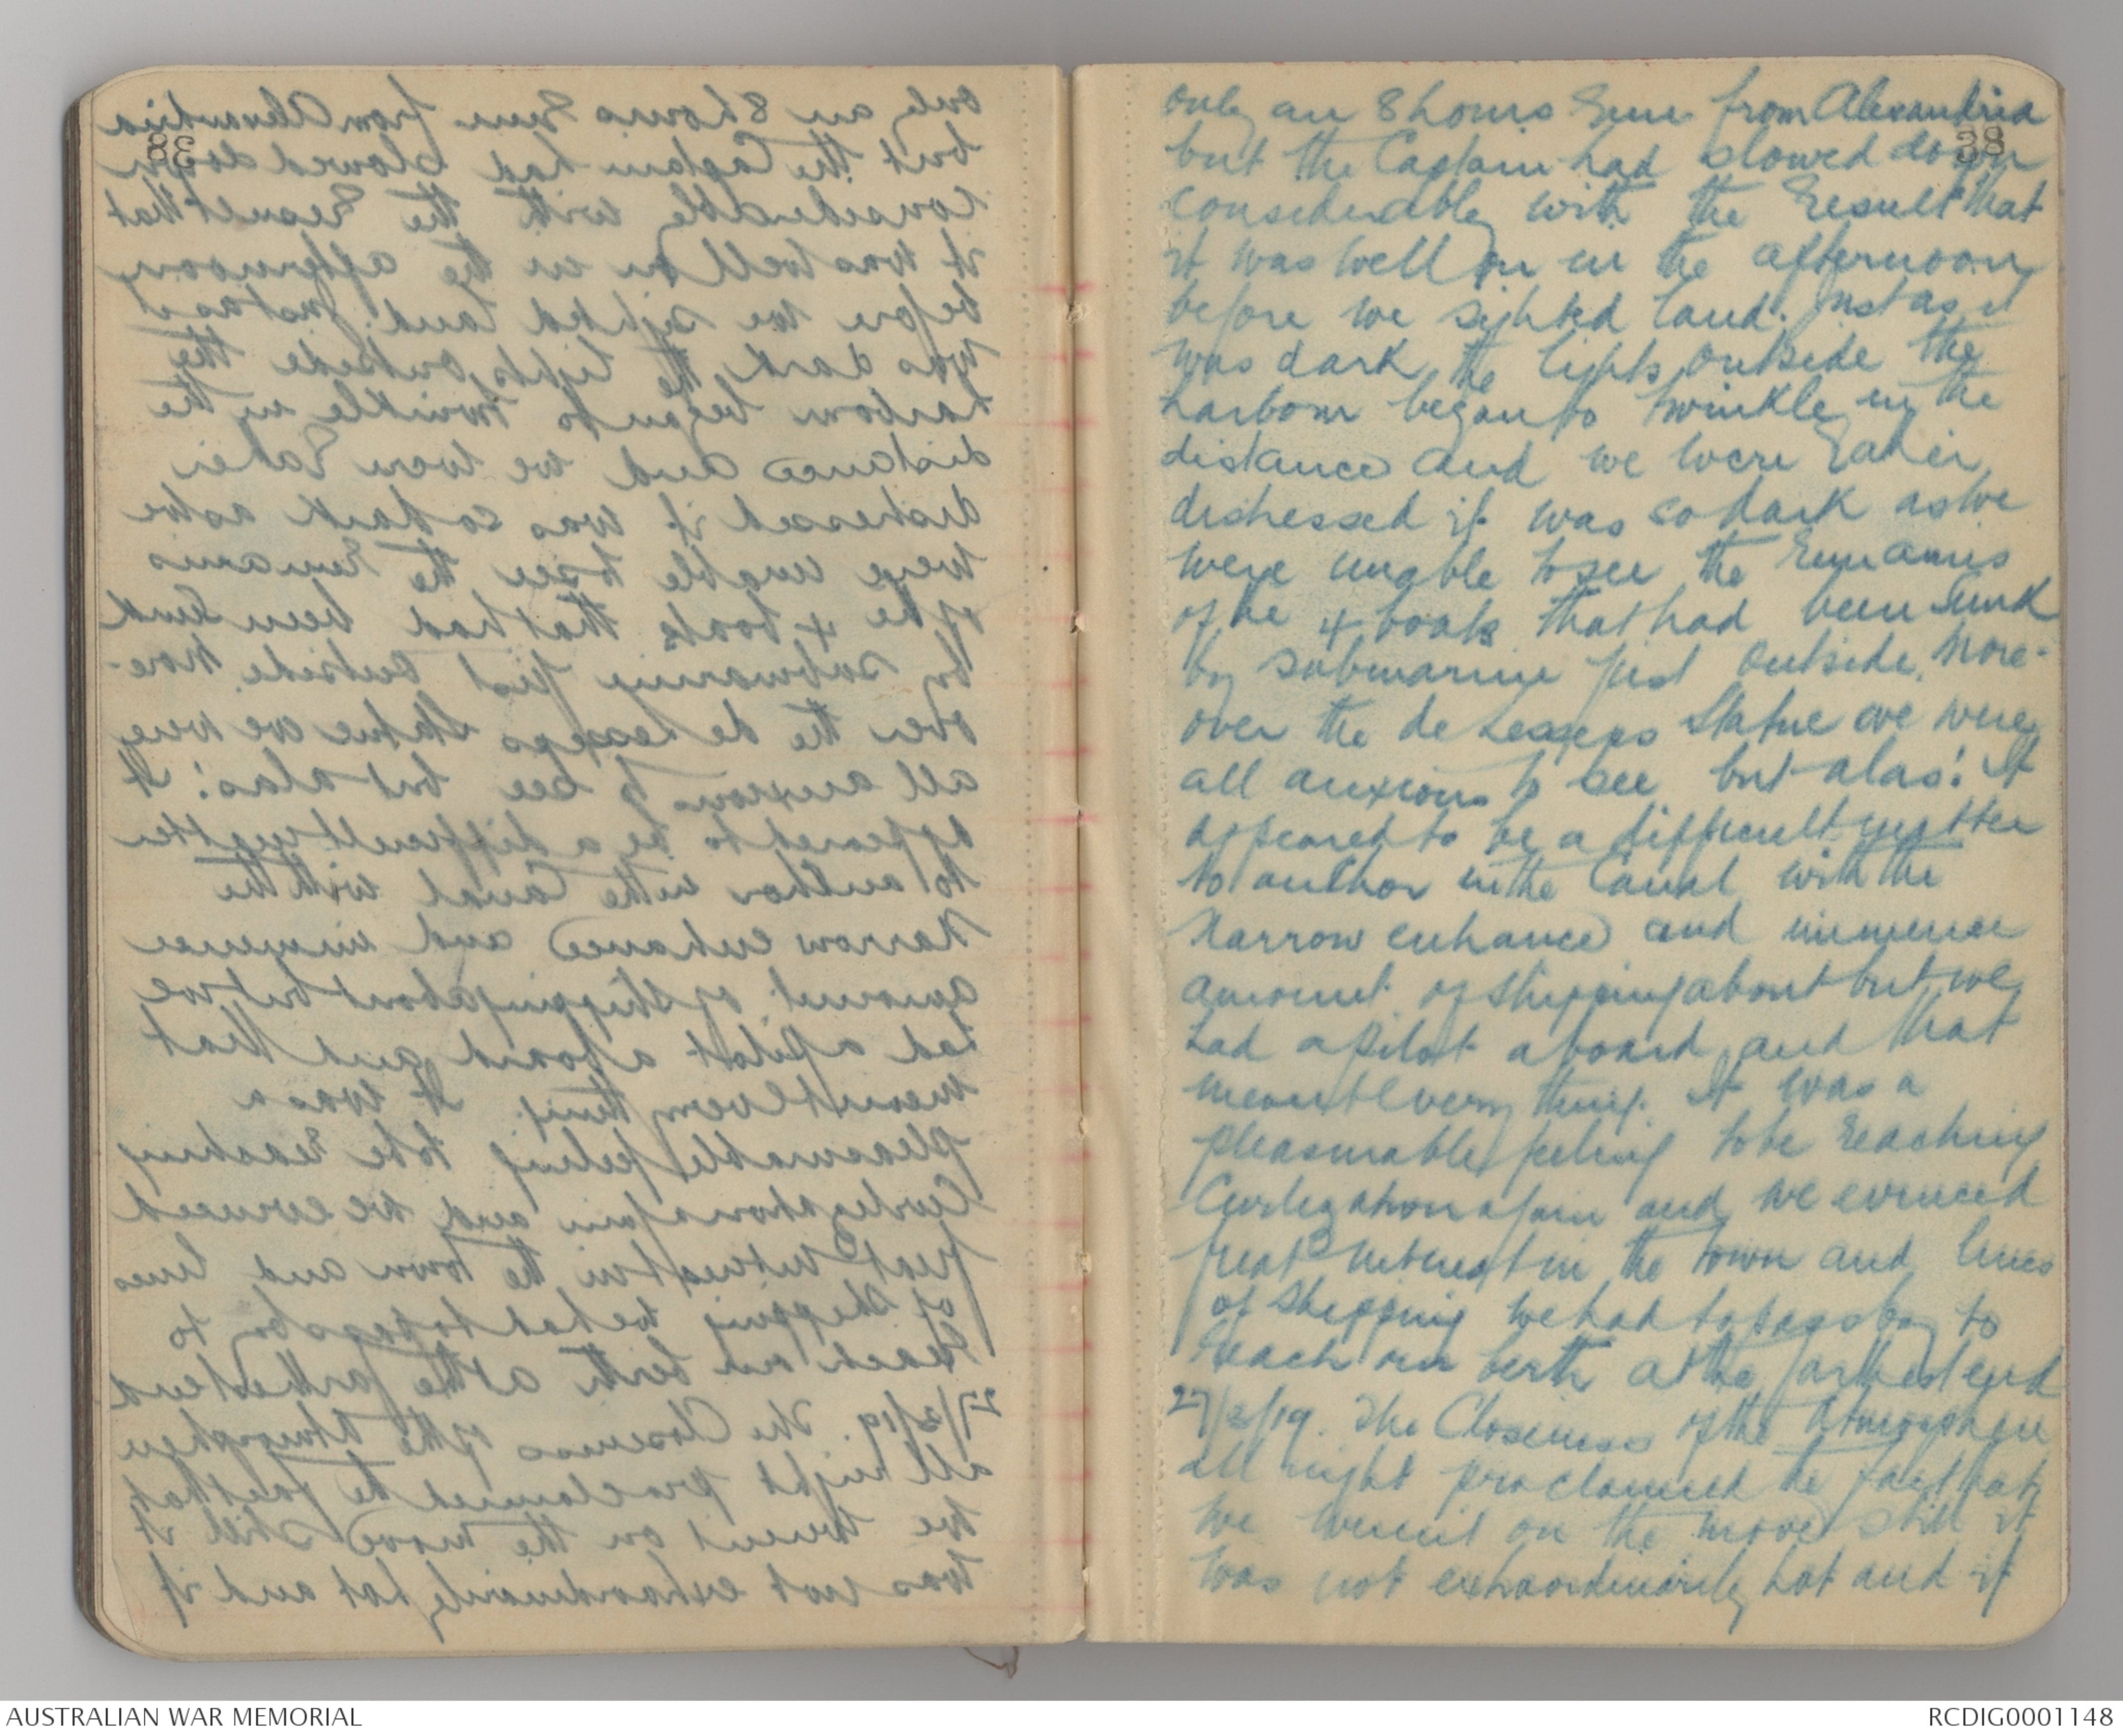 38
only an 8 hours run from Alexandria
but the Captain had slowed down
considerably with the result that
it was well on in the afternoon
before we sighted land. Just as it
was dark the lights outside the
harbour began to twinkle in the
distance and we were rather
distressed it was so dark as we
were unable to see the remains
of the 4 boats that had been sunk
by submarine just outside. More-
over the de Lesseps Statue we were
all anxious to see but alas! It
appeared to be a difficult matter
to anchor in the Canal with the
narrow entrance and immense
amount of shipping about but we
had a pilot aboard and that
meant every thing. It was a
pleasurable feeling to be reaching
Civilization again and we evinced
great interest in the town and lines
of shipping we had to pass by to
reach our berth at the farthest end
27/2/19. The Closeness of the Atmosphere
all night proclaimed the fact that
we weren't on the move still it
was not extraordinarily hot and if
AUSTRALIAN WAR MEMORIAL
RCDIG0001148